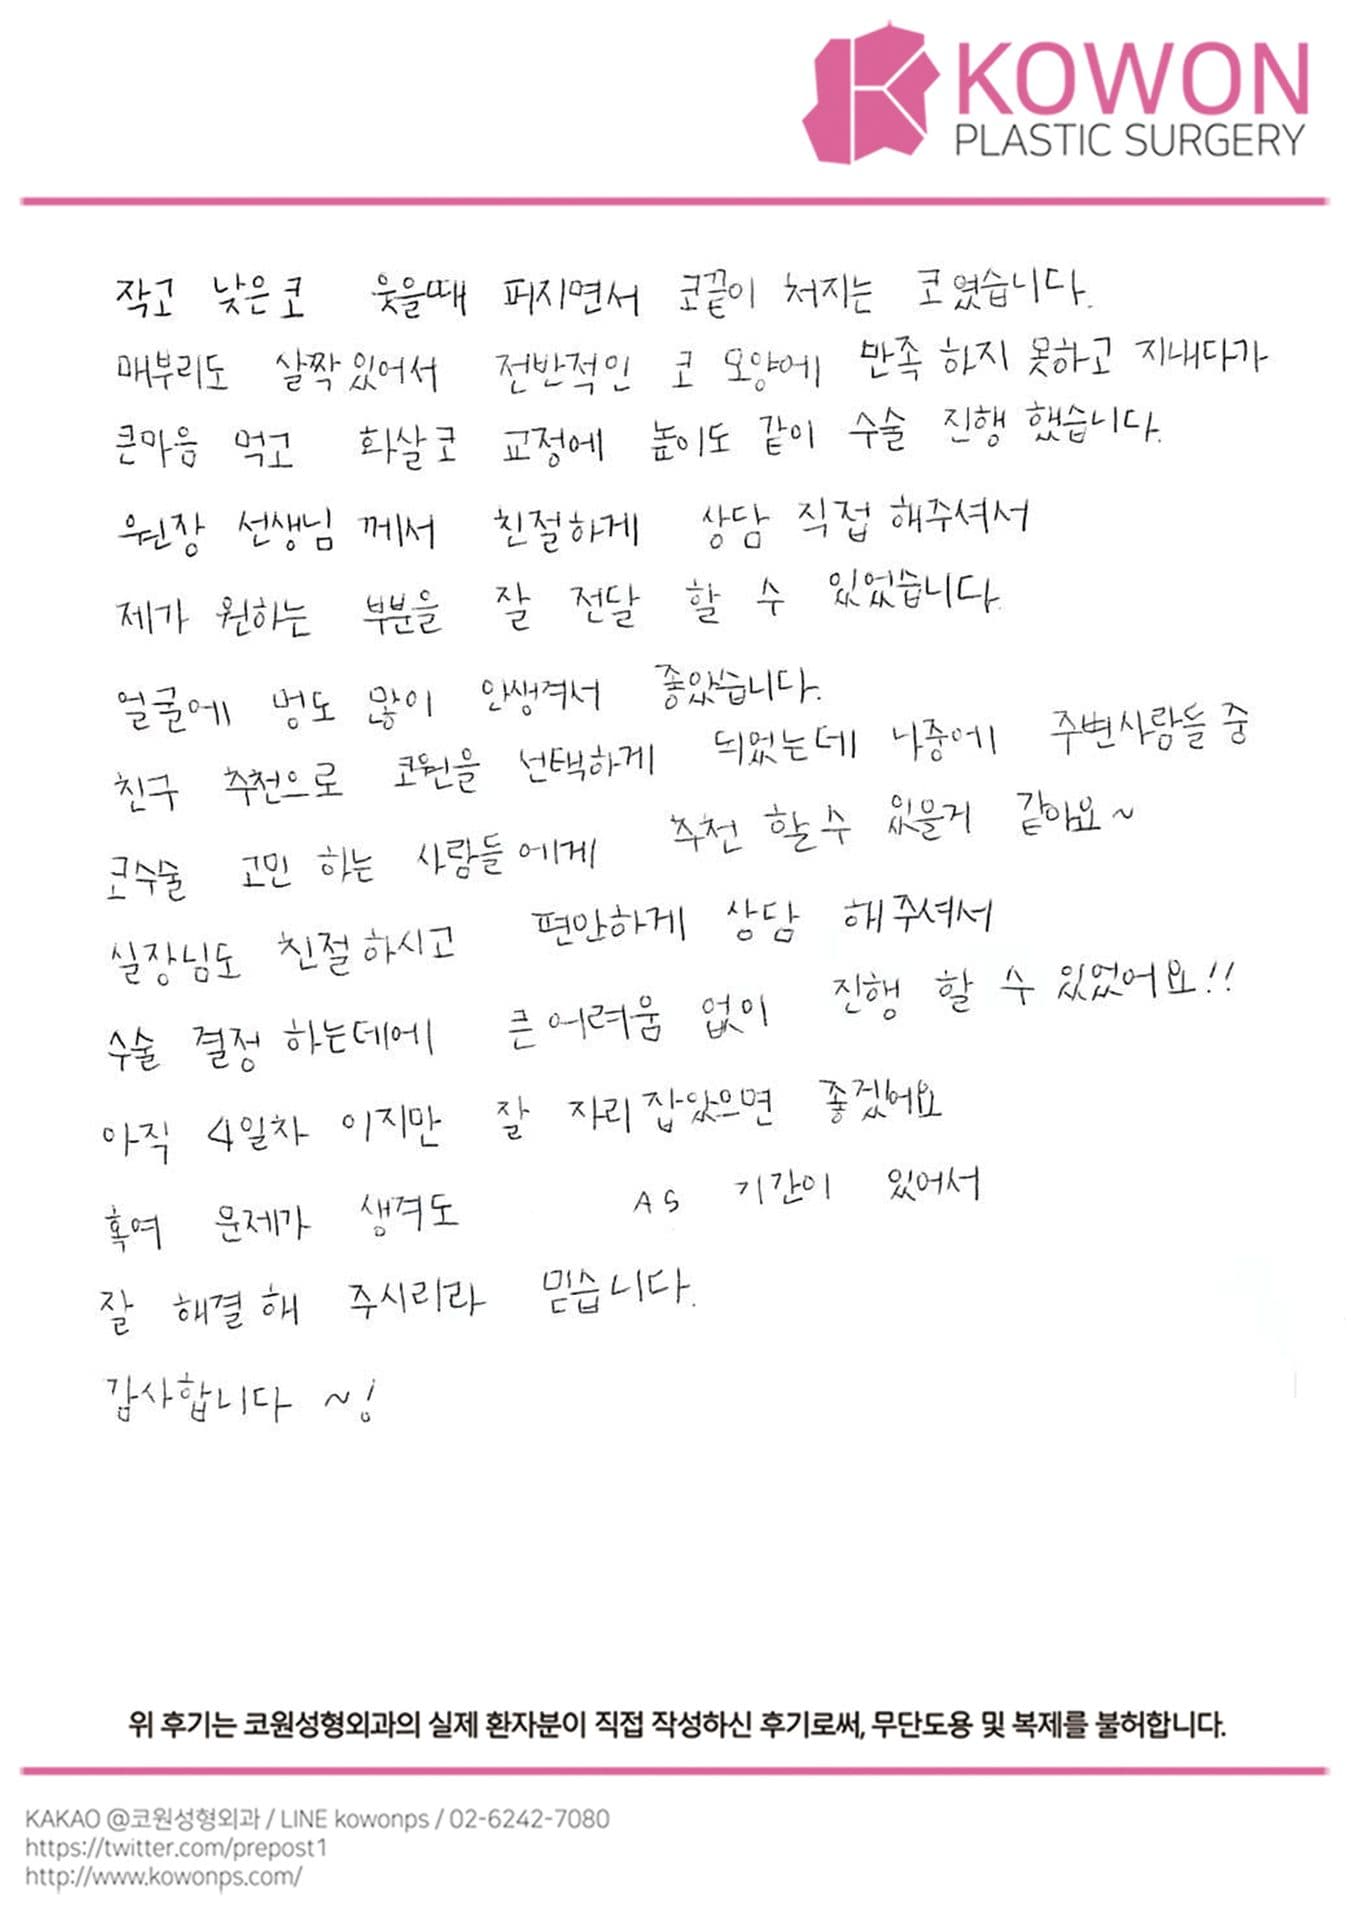 KOWON
PLASTIC SURGERY
작고 낮은코 웃을때 퍼지면서 코끝이 처지는 코였습니다.
매부리도 살짝있어서 전반적인 코 모양에 만족 하지 못하고 지내다가
큰마음 먹고 화살코 교정에 높이도 같이 수술 진행 했습니다.
원장 선생님 께서 친절하게 상담 직접 해주셔서
제가 원하는 부분을 잘 전달 할 수 있었습니다.
얼굴에 멍도 많이 안생겨서 좋았습니다.
친구 추천으로 코원을 선택하게 되었는데 나중에 주변사람들 중
코수술 고민 하는 사람들에게 추천 할수 있을거 같아요~
실장님도 친절하시고 편안하게 상담 해주셔서
수술 결정 하는데에 큰어려움 없이 진행 할 수 있었어요!!
아직 4일차 이지만 잘 자리잡았으면 좋겠어요
혹여 문제가 생겨도 AS 기간이 있어서
잘 해결해 주시리라 믿습니다.
감사합니다 ~!
위 후기는 코원성형외과의 실제 환자분이 직접 작성하신 후기로써, 무단도용 및 복제를 불허합니다.
KAKAO @코원성형외과 / LINE kowonps / 02-6242-7080
https://twitter.com/prepost1
http://www.kowonps.com/